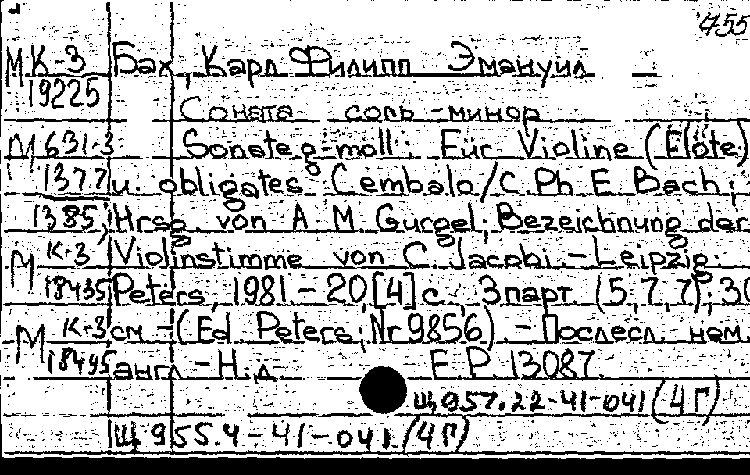 455
М К-3 Бах, Карл Филипп Эмануил
19225
Соната соль-минор
М 631-3 Sonate g-moll: Für Violine (Flöte)
1377 u. obligates Cembalo/C. Ph. E. Bach;
1385, Hrsg. von A. M. Gurgel; Bezeichnung der
М К-3 Violinstimme von C. Jacobi. - Leipzig:
18435 Peters, 1981 - 20,[4] с. 3 парт. (5,7,7); 30
М К-3 см - (Ed. Peters; Nr 9856). - Послесл. нем.
18495 англ. - Н. д. E. P. 13087.
Щ957.22-41-041 (4Г)
Щ 955.4-41-041 (4Г)